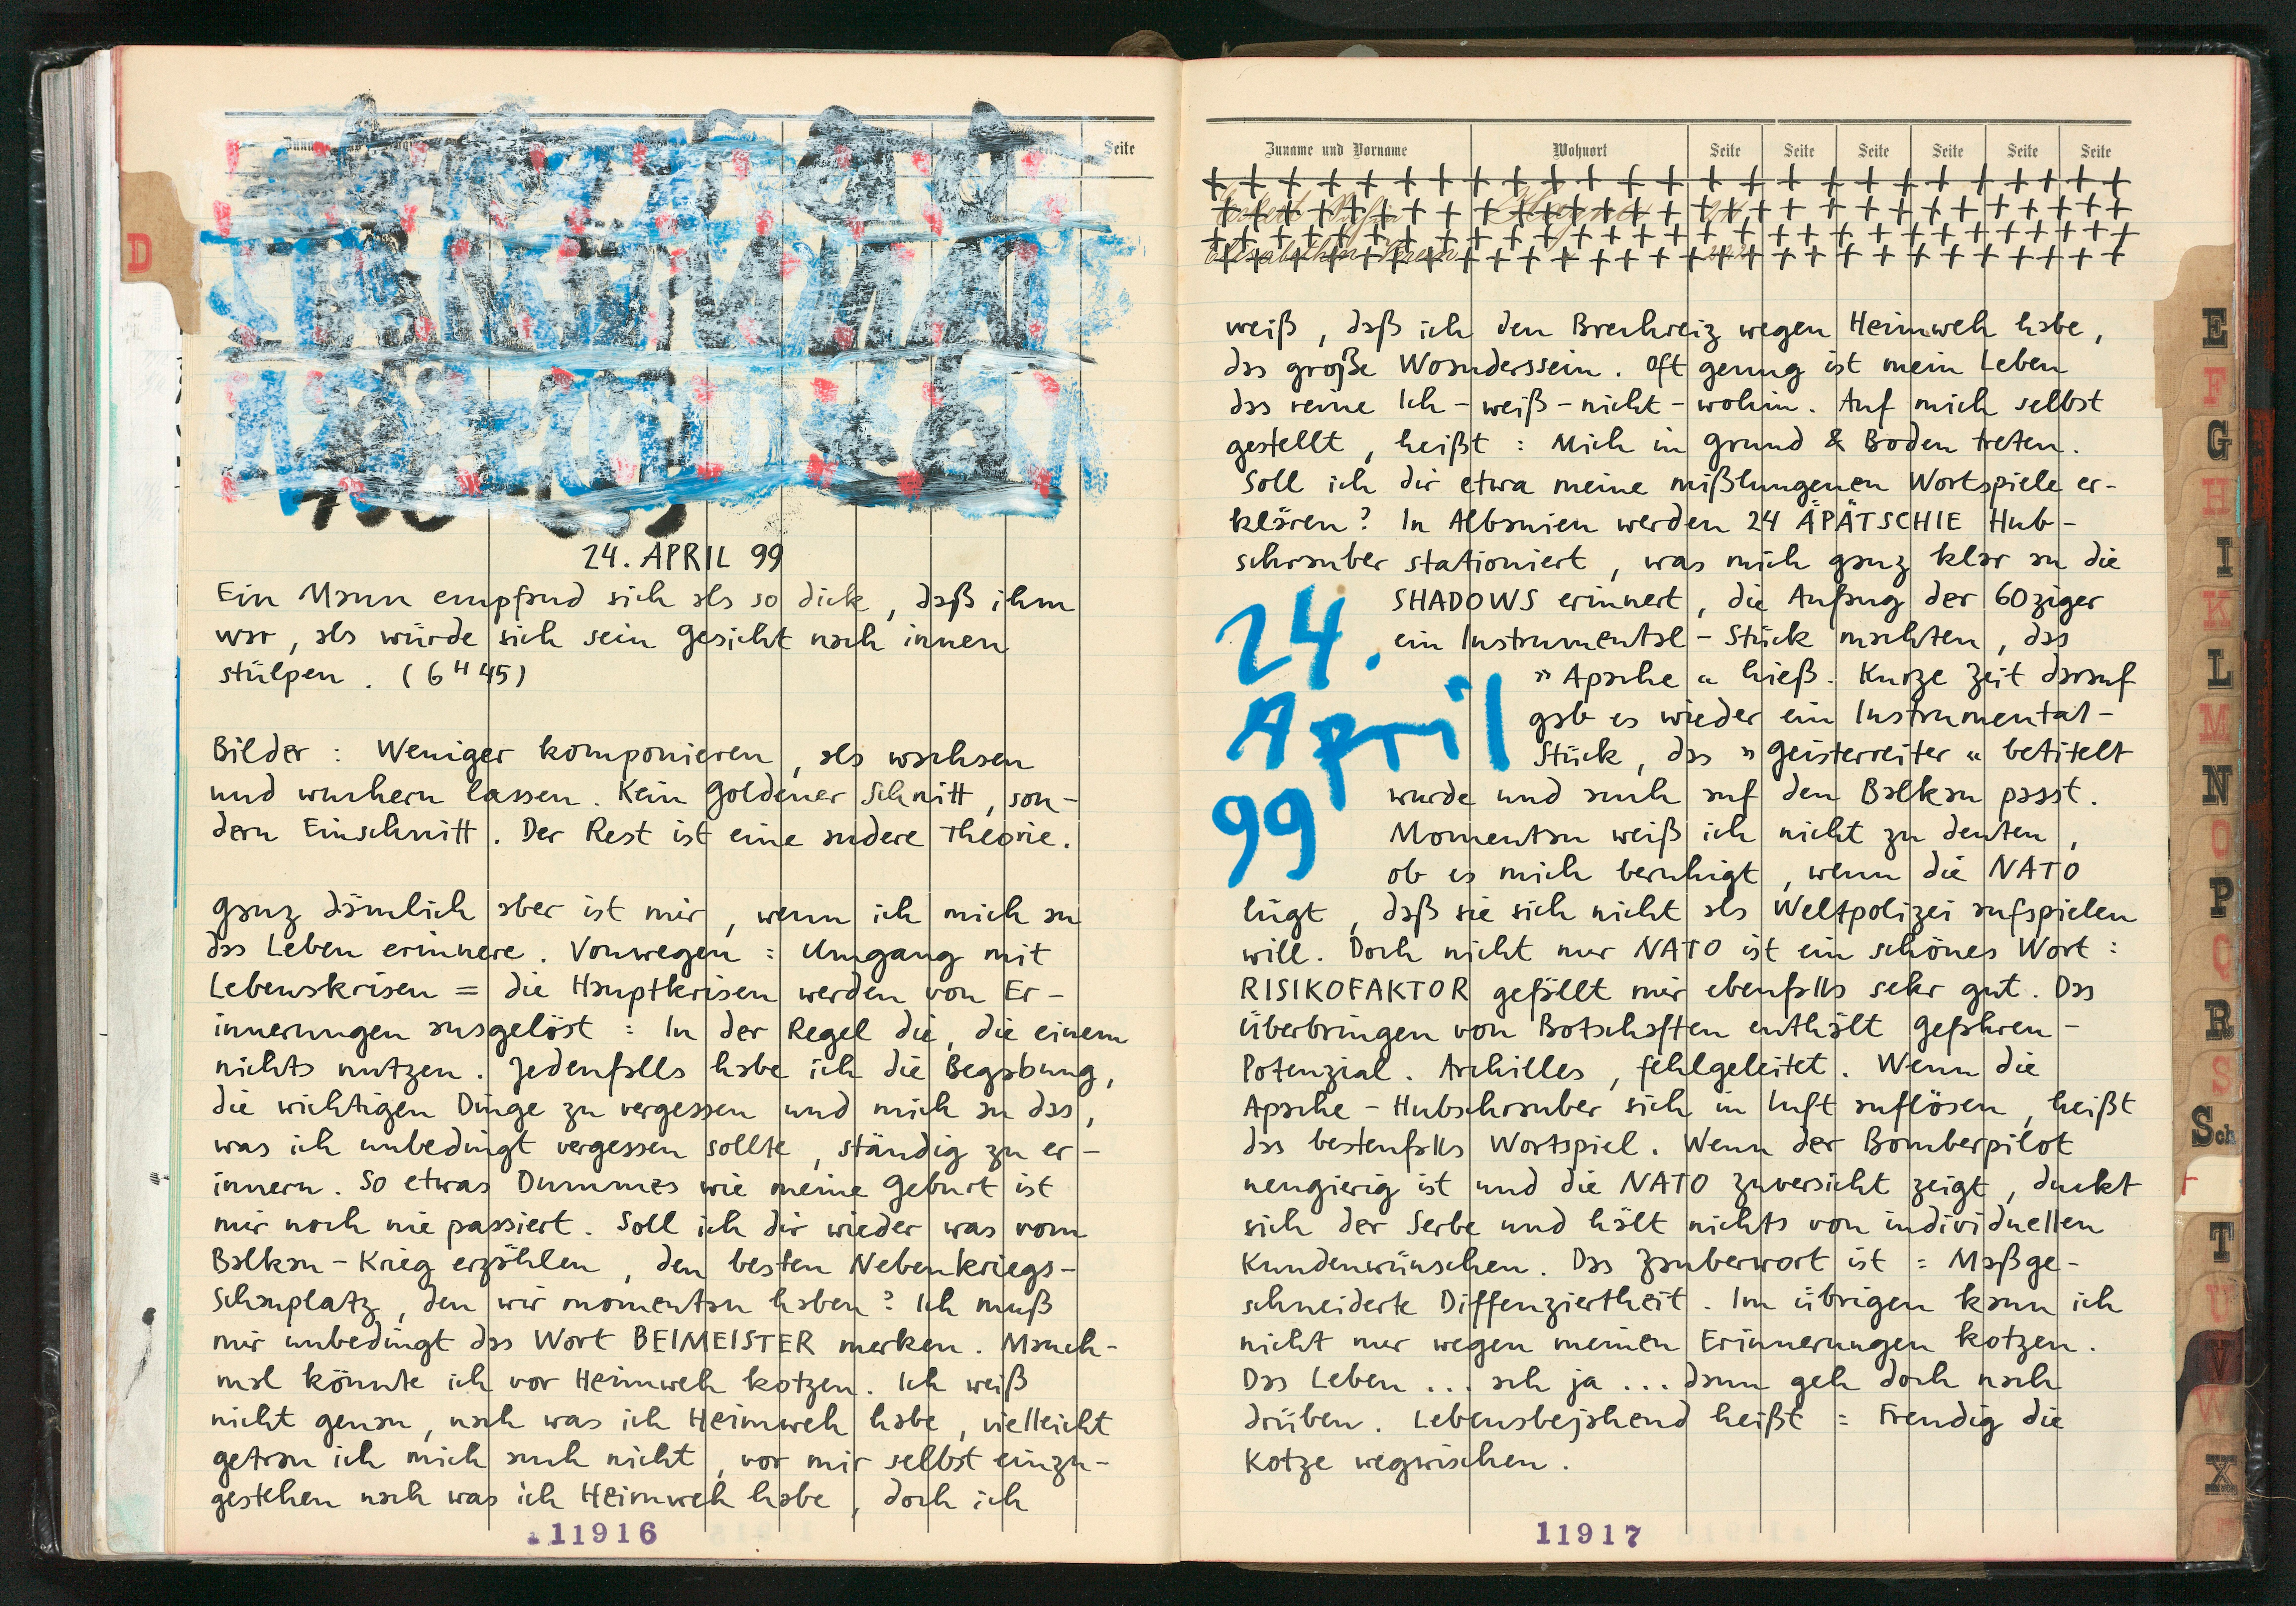 Seite
D
24. APRIL 99
Ein Mann empfand sich als so dick, daß ihm
war, als würde sich sein Gesicht nach innen
stülpen. (6 H 45)
Bilder : Weniger komponieren, als wachsen
und wuchern lassen. Kein Goldener Schnitt, son-
dern Einschnitt. Der Rest ist eine andere Theorie.
Ganz dämlich aber ist mir, wenn ich mich an
das Leben erinnere. Vonwegen : Umgang mit
Lebenskrisen = die Hauptkrisen werden von Er-
innerungen ausgelöst : In der Regel die, die einem
nichts nutzen. Jedenfalls habe ich die Begabung,
die wichtigen Dinge zu vergessen und mich an das,
was ich unbedingt vergessen sollte, ständig zu er-
innern. So etwas Dummes wie meine Geburt ist
mir noch nie passiert. Soll ich dir wieder was vom
Balkan-Krieg erzählen, den besten Nebenkriegs-
Schauplatz, den wir momentan haben? Ich muß
mir unbedingt das Wort BEIMEISTER merken. Manch-
mal könnte ich vor Heimweh kotzen. Ich weiß
nicht genau, nach was ich Heimweh habe, vielleicht
getrau ich mich auch nicht, vor mir selbst einzu-
gestehen nach was ich Heimweh habe, doch ich
11916
Zuname und Vorname Wohnort Seite Seite Seite Seite Seite Seite
weiß, daß ich den Brechreiz wegen Heimweh habe,
das große Woanderssein. Oft genug ist mein Leben
das reine Ich-weiß-nicht-wohin. Auf mich selbst
gestellt, heißt : Mich in Grund & Boden treten.
Soll ich dir etwa meine mißlungenen Wortspiele er-
klären? In Albanien werden 24 ÄPÄTSCHIE Hub-
schrauber stationiert, was mich ganz klar an die
SHADOWS erinnert, die Anfang der 60ziger
ein Instrumental-Stück machten, das
»Apache« hieß. Kurze Zeit darauf
gab es wieder ein Instrumental-
Stück, das »Geisterreiter« betitelt
wurde und auch auf den Balkan passt.
Momentan weiß ich nicht zu deuten,
ob es mich beruhigt, wenn die NATO
24.
April
99
lügt, daß sie sich nicht als Weltpolizei aufspielen
will. Doch nicht nur NATO ist ein schönes Wort :
RISIKOFAKTOR gefällt mir ebenfalls sehr gut. Das
Überbringen von Botschaften enthält Gefahren-
Potenzial. Achilles, fehlgeleitet. Wenn die
Apache-Hubschrauber sich in Luft auflösen, heißt
das bestenfalls Wortspiel. Wenn der Bomberpilot
neugierig ist und die NATO Zuversicht zeigt, duckt
sich der Serbe und hält nichts von individuellen
Kundenwünschen. Das Zauberwort ist : Maßge-
schneiderte Diffenziertheit. Im übrigen kann ich
nicht nur wegen meinen Erinnerungen kotzen.
Das Leben ... ach ja ... dann geh doch nach
drüben. Lebensbejahend heißt : Freudig die
Kotze wegwischen.
11917
E
F
G
H
I
K
L
M
N
O
P
Q
R
S
Sch
T
U
V
W
X